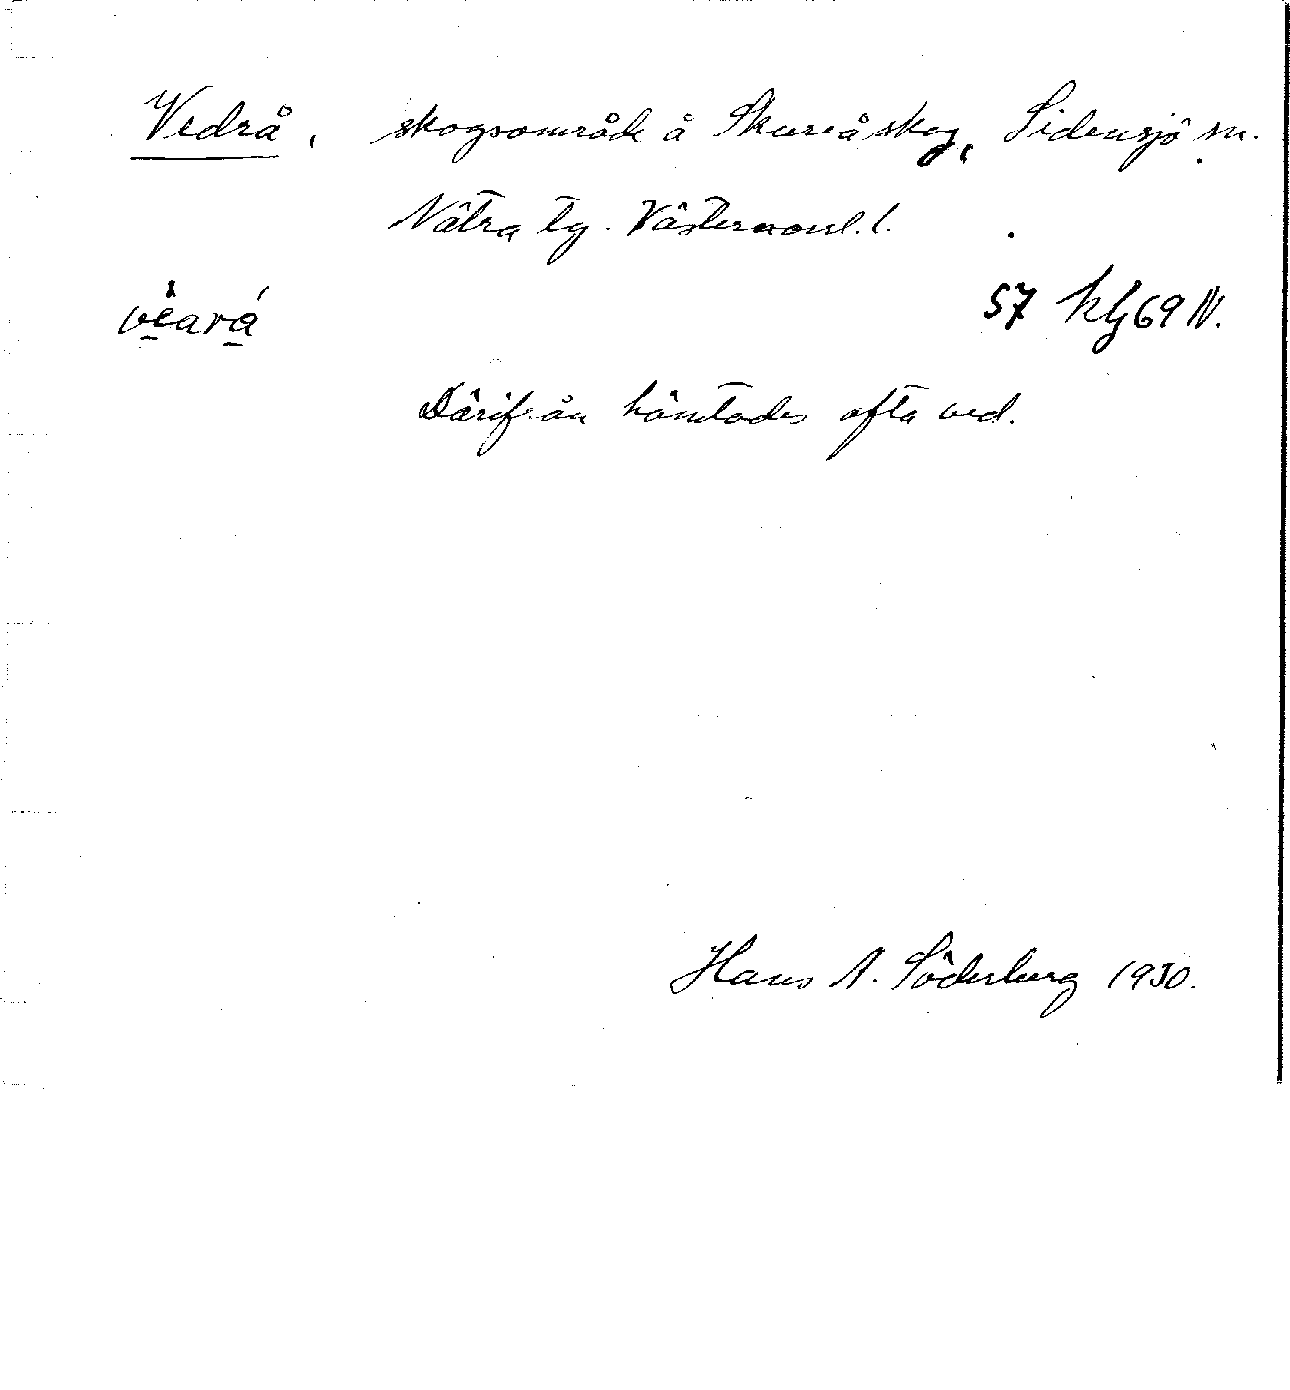 Vedrå, skogsområde å Skureå skog, Sidensjö sn.
Nätra tg. Västernorrl. l.
vèará 57 klj 69 N.
Därifrån hämtades ofta ved.
Hans A. Söderberg 1930.